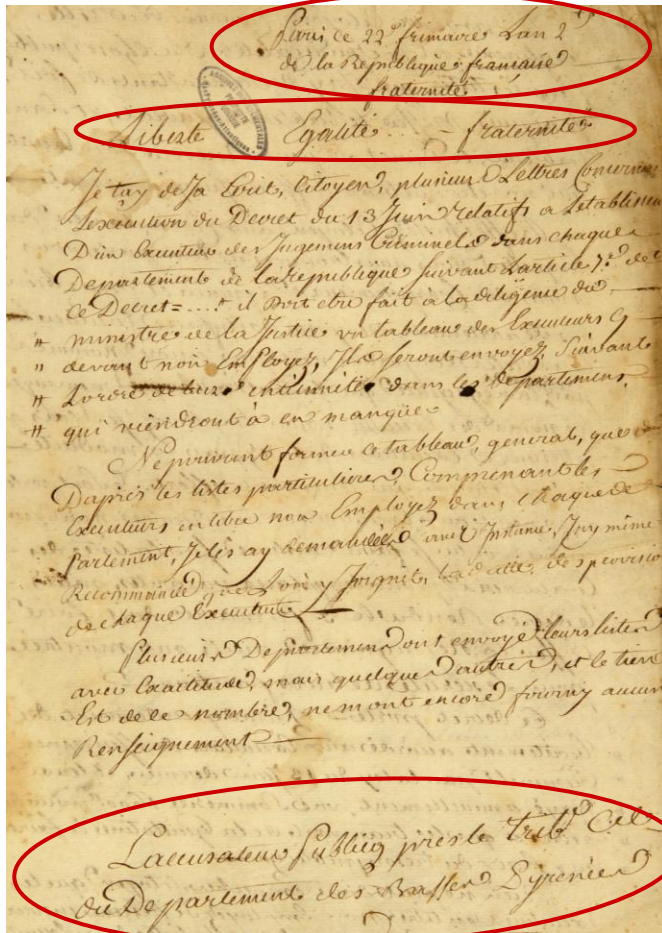 Paris ce 22 frimaire Lan 2
de la Republique francaise
fraternité
Liberte Egalité fraternité
Je tay deja Ecrit, Citoyen, plusieurs Lettres Concernan
Lexecution du Decret du 13 Juin relatifs a Letablissem
D'un Executeur des Jugemens Criminels dans chaque
Departement de la republique Suivant Larticle 7e de
ce Decret = .... il doit etre fait à la diligence du
" ministre de la Justice un tableau des Executeurs
" devant non Employez, Ils seront envoyez, Suivant
" Lordre de leur dans les departemens
" qui viendront à en manquer
Ne pouvant former ce tableau, general, que
Daprès les listes particulieres, Comprenant les
Executeurs non Employez dans chaque de
Partement, Je les ay demandées avec Instance, J'ay même
Recommandé que Lon y Joignit,
de chaque Executeur
Plusieurs Departemens ont envoyé leurs listes
avec Exactitude, mais quelques autres, et le tien
Est de ce nombre, ne mont encore fourny aucun
Renseignement
Laccusateur Publicq près le tribal Cel
du Departement des Basses Pyrenées